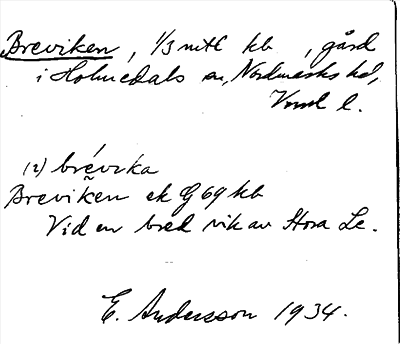 Breviken, 1/3 mtl kb, gård
i Holmedals sn, Nordmarks hd,
Vrml l.
(2) brévika
Breviken ek G 69 kb
Vid en bred vik av Stora Le.
E. Andersson 1934.